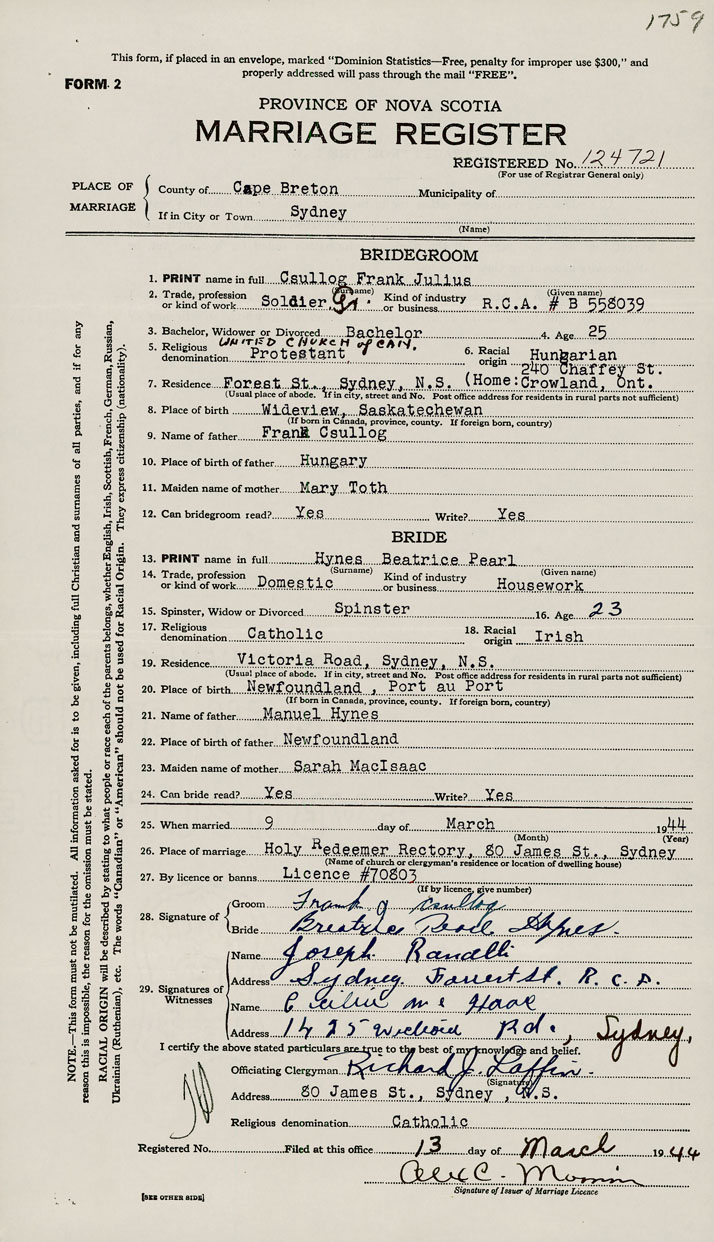 1759
This form, if placed in an envelope, marked "Dominion Statistics—Free, penalty for improper use $300," and
properly addressed will pass through the mail "FREE".
FORM 2
PROVINCE OF NOVA SCOTIA
MARRIAGE REGISTER
REGISTERED No. 124721
(For use of Registrar General only)
PLACE OF MARRIAGE
County of Cape Breton Municipality of
If in City or Town Sydney
(Name)
BRIDEGROOM
1. PRINT name in full Csullog Frank Julius
(Surname) (Given name)
2. Trade, profession or kind of work Soldier Kind of industry or business R.C.A. # B 558039
3. Bachelor, Widower or Divorced Bachelor 4. Age 25
5. Religious denomination UNITED CHURCH of CAN. Protestant 6. Racial origin Hungarian
240 Chaffey St.
7. Residence Forest St., Sydney, N.S. (Home: Crowland, Ont.
(Usual place of abode. If in city, street and No. Post office address for residents in rural parts not sufficient)
8. Place of birth Wideview, Saskatechewan
(If born in Canada, province, county. If foreign born, country)
9. Name of father Frank Csullog
10. Place of birth of father Hungary
11. Maiden name of mother Mary Toth
12. Can bridegroom read? Yes Write? Yes
BRIDE
13. PRINT name in full Hynes Beatrice Pearl
(Surname) (Given name)
14. Trade, profession or kind of work Domestic Kind of industry or business Housework
15. Spinster, Widow or Divorced Spinster 16. Age 23
17. Religious denomination Catholic 18. Racial origin Irish
19. Residence Victoria Road, Sydney, N.S.
(Usual place of abode. If in city, street and No. Post office address for residents in rural parts not sufficient)
20. Place of birth Newfoundland , Port au Port
(If born in Canada, province, county. If foreign born, country)
21. Name of father Manuel Hynes
22. Place of birth of father Newfoundland
23. Maiden name of mother Sarah MacIsaac
24. Can bride read? Yes Write? Yes
25. When married 9 day of March 1944
(Month) (Year)
26. Place of marriage Holy Redeemer Rectory, 80 James St., Sydney
(Name of church or clergyman's residence or location of dwelling house)
27. By licence or banns Licence #70803
(If by licence, give number)
28. Signature of
Groom Frank J Csullog
Bride Breatrice Pearl Hynes.
29. Signatures of Witnesses
Name Joseph
Address Sydney Forrest St. R. C. A.
Name
Address 1425 Rd., Sydney,
I certify the above stated particulars are true to the best of my knowledge and belief.
Officiating Clergyman Richard J. Laffin.
(Signature)
Address 80 James St., Sydney , N.S.
Religious denomination Catholic
Registered No. Filed at this office 13 day of March 1944
Alex C.
Signature of Issuer of Marriage Licence
[SEE OTHER SIDE]
NOTE.—This form must not be mutilated. All information asked for is to be given, including full Christian and surnames of all parties, and if for any
reason this is impossible, the reason for the omission must be stated.
RACIAL ORIGIN will be described by stating to what people or race each of the parents belongs, whether English, Irish, Scottish, French, German, Russian,
Ukrainian (Ruthenian), etc. The words "Canadian" or "American" should not be used for Racial Origin. They express citizenship (nationality).